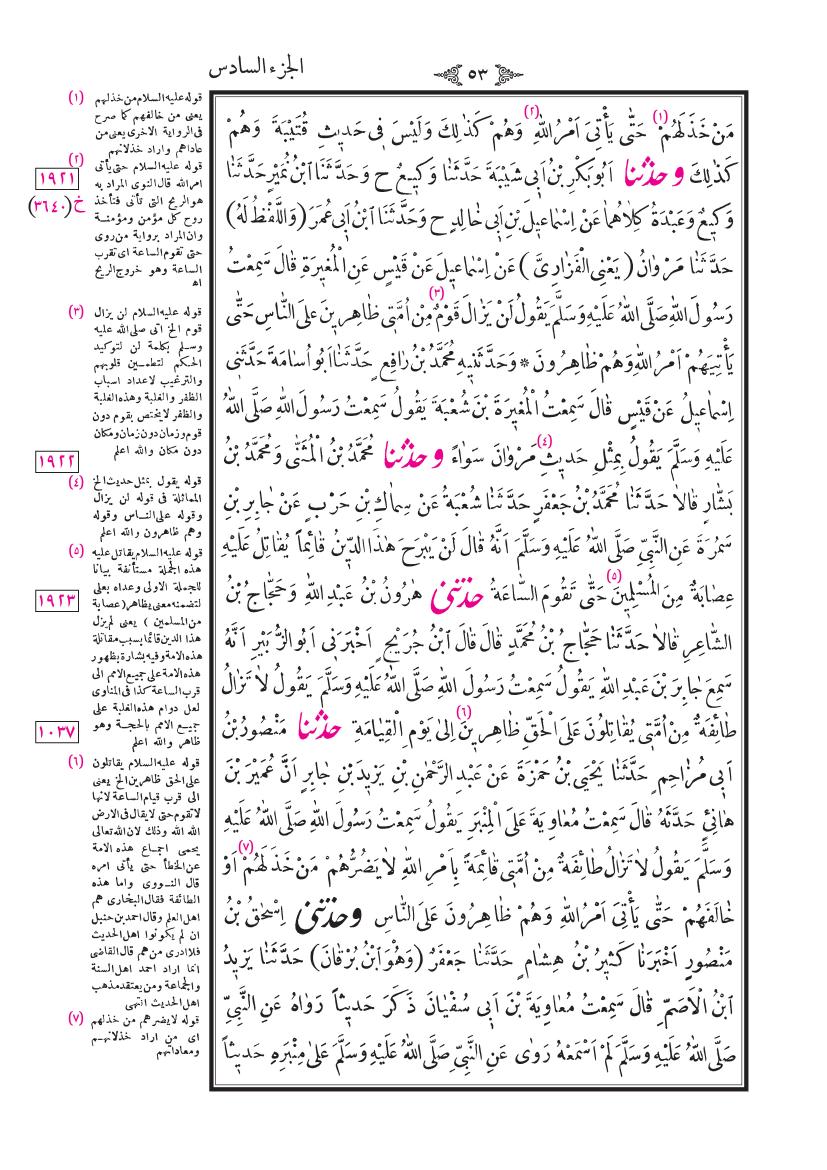 الجزء السادس
٥٣
مَنْ خَذَلَهُمْ (١) حَتّٰى يَأْتِىَ اَمْرُ اللّٰهِ (٢) وَهُمْ كَذٰلِكَ وَلَيْسَ فِى حَدِيثِ قُتَيْبَةَ وَهُمْ
كَذٰلِكَ وحدثنا اَبُو بَكْرِ بْنُ اَبِى شَيْبَةَ حَدَّثَنَا وَكِيعٌ ح وَحَدَّثَنَا ابْنُ نُمَيْرٍ حَدَّثَنَا
وَكِيعٌ وَعَبْدَةُ كِلَاهُمَا عَنْ اِسْمَاعِيلَ بْنِ اَبِى خَالِدٍ ح وَحَدَّثَنَا ابْنُ اَبِى عُمَرَ (وَاللَّفْظُ لَهُ)
حَدَّثَنَا مَرْوَانُ (يَعْنِى الْفَزَارِىَّ) عَنْ اِسْمَاعِيلَ عَنْ قَيْسٍ عَنِ الْمُغِيرَةِ قَالَ سَمِعْتُ
رَسُولَ اللّٰهِ صَلَّى اللّٰهُ عَلَيْهِ وَسَلَّمَ يَقُولُ لَنْ يَزَالَ قَوْمٌ (٣) مِنْ اُمَّتِى ظَاهِرِينَ عَلَى النَّاسِ حَتّٰى
يَأْتِيَهُمْ اَمْرُ اللّٰهِ وَهُمْ ظَاهِرُونَ * وَحَدَّثَنِيهِ مُحَمَّدُ بْنُ رَافِعٍ حَدَّثَنَا اَبُو اُسَامَةَ حَدَّثَنِى
اِسْمَاعِيلُ عَنْ قَيْسٍ قَالَ سَمِعْتُ الْمُغِيرَةَ بْنَ شُعْبَةَ يَقُولُ سَمِعْتُ رَسُولَ اللّٰهِ صَلَّى اللّٰهُ
عَلَيْهِ وَسَلَّمَ يَقُولُ بِمِثْلِ حَدِيثِ (٤) مَرْوَانَ سَوَاءً وحدثنا مُحَمَّدُ بْنُ الْمُثَنّٰى وَمُحَمَّدُ بْنُ
بَشَّارٍ قَالَا حَدَّثَنَا مُحَمَّدُ بْنُ جَعْفَرٍ حَدَّثَنَا شُعْبَةُ عَنْ سِمَاكِ بْنِ حَرْبٍ عَنْ جَابِرِ بْنِ
سَمُرَةَ عَنِ النَّبِىِّ صَلَّى اللّٰهُ عَلَيْهِ وَسَلَّمَ اَنَّهُ قَالَ لَنْ يَبْرَحَ هٰذَا الدِّينُ قَائِمًا يُقَاتِلُ عَلَيْهِ
عِصَابَةٌ مِنَ الْمُسْلِمِينَ (٥) حَتّٰى تَقُومَ السَّاعَةُ حدثنى هٰرُونُ بْنُ عَبْدِ اللّٰهِ وَحَجَّاجُ بْنُ
الشَّاعِرِ قَالَا حَدَّثَنَا حَجَّاجُ بْنُ مُحَمَّدٍ قَالَ قَالَ ابْنُ جُرَيْجٍ اَخْبَرَنِى اَبُو الزُّبَيْرِ اَنَّهُ
سَمِعَ جَابِرَ بْنَ عَبْدِ اللّٰهِ يَقُولُ سَمِعْتُ رَسُولَ اللّٰهِ صَلَّى اللّٰهُ عَلَيْهِ وَسَلَّمَ يَقُولُ لَا تَزَالُ
طَائِفَةٌ مِنْ اُمَّتِى يُقَاتِلُونَ عَلَى الْحَقِّ ظَاهِرِينَ (٦) اِلٰى يَوْمِ الْقِيَامَةِ حدثنا مَنْصُورُ بْنُ
اَبِى مُزَاحِمٍ حَدَّثَنَا يَحْيَى بْنُ حَمْزَةَ عَنْ عَبْدِ الرَّحْمٰنِ بْنِ يَزِيدَ بْنِ جَابِرٍ اَنَّ عُمَيْرَ بْنَ
هَانِئٍ حَدَّثَهُ قَالَ سَمِعْتُ مُعَاوِيَةَ عَلَى الْمِنْبَرِ يَقُولُ سَمِعْتُ رَسُولَ اللّٰهِ صَلَّى اللّٰهُ عَلَيْهِ
وَسَلَّمَ يَقُولُ لَا تَزَالُ طَائِفَةٌ مِنْ اُمَّتِى قَائِمَةً بِاَمْرِ اللّٰهِ لَا يَضُرُّهُمْ مَنْ خَذَلَهُمْ (٧) اَوْ
خَالَفَهُمْ حَتّٰى يَأْتِىَ اَمْرُ اللّٰهِ وَهُمْ ظَاهِرُونَ عَلَى النَّاسِ وحدثنى اِسْحٰقُ بْنُ
مَنْصُورٍ اَخْبَرَنَا كَثِيرُ بْنُ هِشَامٍ حَدَّثَنَا جَعْفَرٌ (وَهُوَ ابْنُ بُرْقَانَ) حَدَّثَنَا يَزِيدُ
ابْنُ الْاَصَمِّ قَالَ سَمِعْتُ مُعَاوِيَةَ بْنَ اَبِى سُفْيَانَ ذَكَرَ حَدِيثًا رَوَاهُ عَنِ النَّبِىِّ
صَلَّى اللّٰهُ عَلَيْهِ وَسَلَّمَ لَمْ اَسْمَعْهُ رَوٰى عَنِ النَّبِىِّ صَلَّى اللّٰهُ عَلَيْهِ وَسَلَّمَ عَلٰى مِنْبَرِهِ حَدِيثًا
(١) قوله عليه السلام من خذلهم
يعنى من خالفهم كما صرح
فى الرواية الاخرى يعنى من
عاداهم واراد خذلانهم
(٢) قوله عليه السلام حتى يأتى
امر الله قال النوى المراد به
هو الريح التى تأتى فتأخذ
روح كل مؤمن ومؤمنة
وان المراد برواية من روى
حتى تقوم الساعة اى تقرب
الساعة وهو خروج الريح
اه
(٣) قوله عليه السلام لن يزال
قوم الخ اتى صلى الله عليه
وسلم بكلمة لن لتوكيد
الحكم لتطمئن قلوبهم
والترغيب لاعداد اسباب
الظفر والغلبة وهذه الغلبة
والظفر لا يختص بقوم دون
قوم وزمان دون زمان ومكان
دون مكان والله اعلم
(٤) قوله يقول بمثل حديث الخ
المماثلة فى قوله لن يزال
وقوله على الناس وقوله
وهم ظاهرون والله اعلم
(٥) قوله عليه السلام يقاتل عليه
هذه الجملة مستأنفة بيانا
للجملة الاولى وعداه بعلى
لتضمنه معنى يظاهر (عصابة
من المسلمين) يعنى لم يزل
هذا الدين قائما بسبب مقاتلة
هذه الامة وفيه بشارة بظهور
هذه الامة على جميع الامم الى
قرب الساعة كذا فى المناوى
لعل دوام هذه الغلبة على
جميع الامم بالحجة وهو
ظاهر والله اعلم
(٦) قوله عليه السلام يقاتلون
على الحق ظاهرين الخ يعنى
الى قرب قيام الساعة لانها
لا تقوم حتى لا يقال فى الارض
الله الله وذلك لان الله تعالى
يحمى اجماع هذه الامة
عن الخطأ حتى يأتى امره
قال النووى واما هذه
الطائفة فقال البخارى هم
اهل العلم وقال احمد بن حنبل
ان لم يكونوا اهل الحديث
فلا ادرى من هم قال القاضى
انما اراد احمد اهل السنة
والجماعة ومن يعتقد مذهب
اهل الحديث انتهى
(٧) قوله لا يضرهم من خذلهم
اى من اراد خذلانهم
ومعاداتهم
١٩٢١
خ (٣٦٤٠)
١٩٢٢
١٩٢٣
١٠٣٧